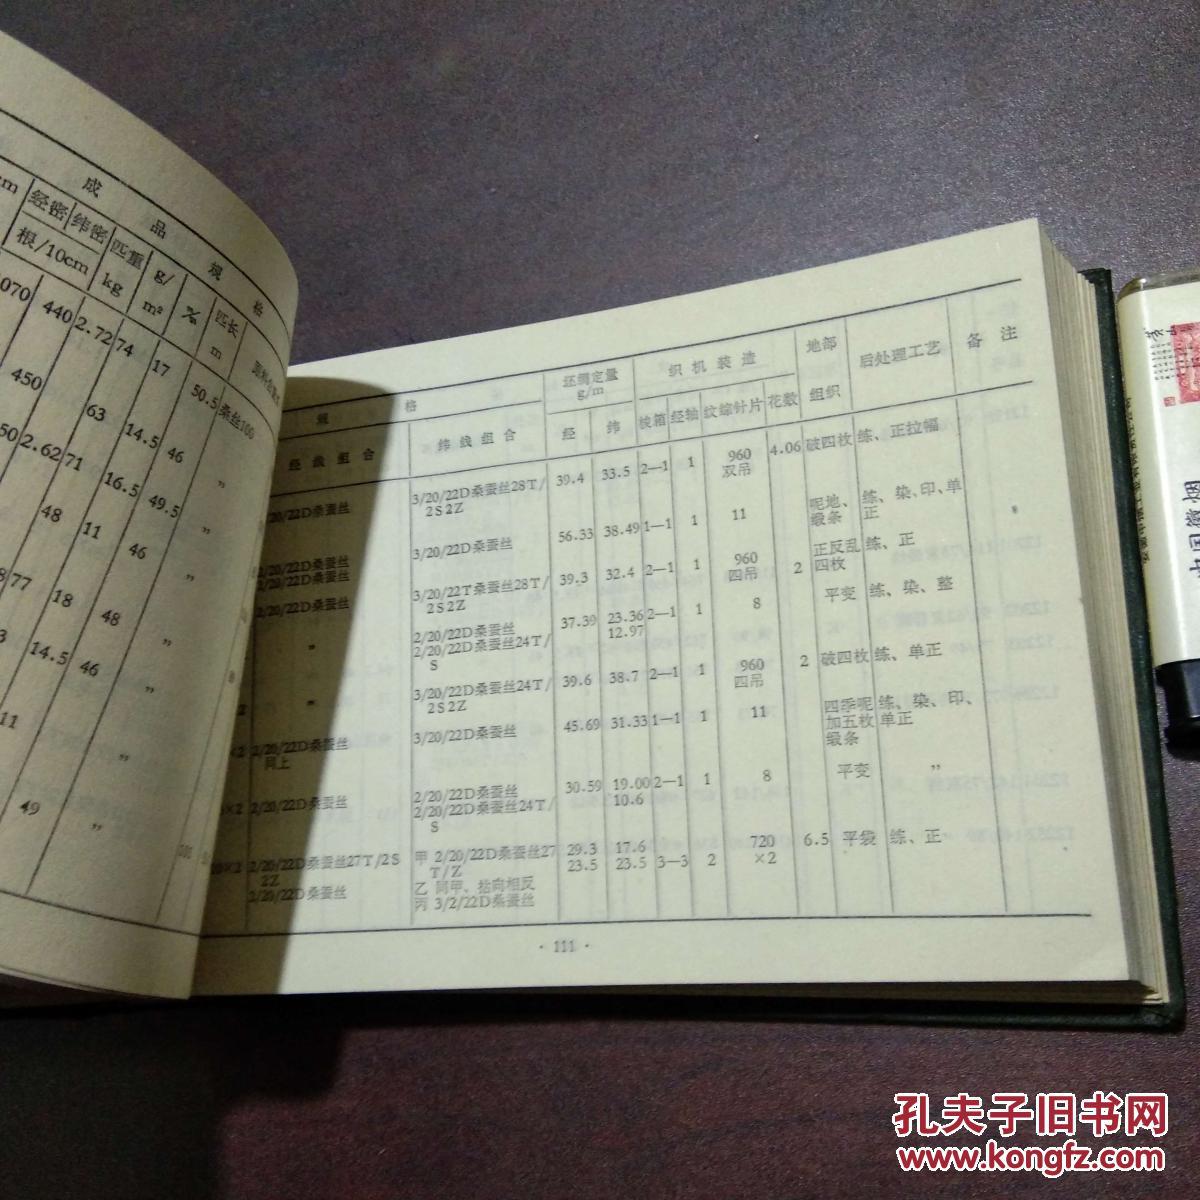 成 品 规 格
cm 经密 纬密 匹重 g/ 匹长
根/10cm kg m² m
070 440 2.72 74 17 50.5 桑丝100
450 63 14.5 46 〃
50 2.62 71 16.5 49.5 〃
48 11 46 〃
77 18 48 〃
14.5 46 〃
11 〃
49 〃
规 格 坯绸定量 织 机 装 造 地部 后处理工艺 备 注
g/m
经 线 组 合 纬 线 组 合 经 纬 梭箱 经轴 纹综针片 花数 组织
2/20/22D桑蚕丝 3/20/22D桑蚕丝28T/ 39.4 33.5 2—1 1 960 4.06 破四枚 练、正拉幅
2S2Z 双吊
3/20/22D桑蚕丝 56.33 38.49 1—1 1 11 呢地、 练、染、印、单
缎条 正
2/20/22D桑蚕丝
2/20/22D桑蚕丝
2/20/22D桑蚕丝 3/20/22T桑蚕丝28T/ 39.3 32.4 2—1 1 960 2 正反乱 练、正
2S2Z 四吊 四枚
〃 2/20/22D桑蚕丝 37.39 23.36 2—1 1 8 平变 练、染、整
2/20/22D桑蚕丝24T/ 12.97
S
×2 〃 3/20/22D桑蚕丝24T/ 39.6 38.7 2—1 1 960 2 破四枚 练、单正
2S2Z 四吊
×2 2/20/22D桑蚕丝 3/20/22D桑蚕丝 45.69 31.33 1—1 1 11 四季呢 练、染、印、
同上 加五枚 单正
缎条
×2 2/20/22D桑蚕丝 2/20/22D桑蚕丝 30.59 19.00 2—1 1 8 平变 〃
2/20/22D桑蚕丝24T/ 10.6
S
×2 2/20/22D桑蚕丝27T/2S 甲 2/20/22D桑蚕丝27 29.3 17.6 720 6.5 平袋 练、正
2Z T/Z 23.5 23.5 3—3 2 ×2
2/20/22D桑蚕丝 乙 同甲、拈向相反
丙 3/2/22D桑蚕丝
· 111 ·
中国徽烟
孔夫子旧书网
www.kongfz.com